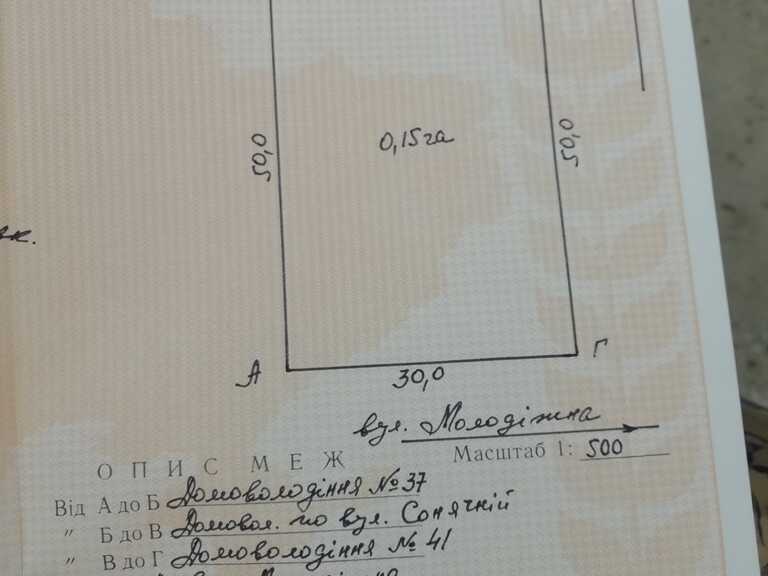 50,0
0,15 га
50,0
А
Г
30,0
вул. Молодіжна
Масштаб 1: 500
ОПИС МЕЖ
Від А до Б Домоволодіння № 37
" Б до В Домовол. по вул. Сонячній
" В до Г Домоволодіння № 41